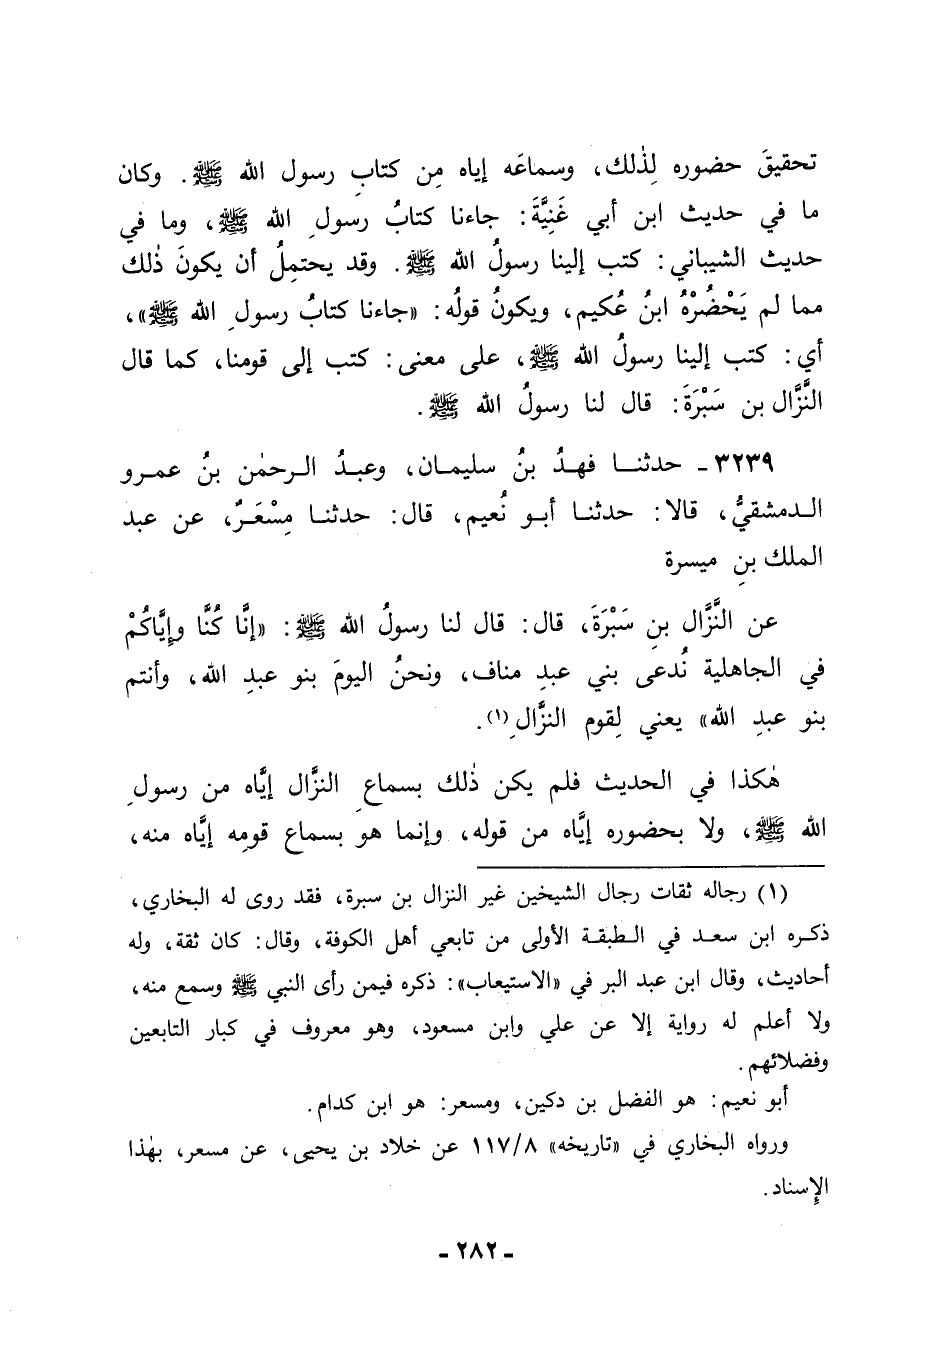 تحقيقَ حضوره لِذٰلك، وسماعَه إياه مِن كتابِ رسول الله ﷺ. وكان
ما في حديث ابن أبي غَنِيَّةَ: جاءنا كتابُ رسولِ الله ﷺ، وما في
حديث الشيباني: كتب إلينا رسولُ الله ﷺ. وقد يحتمِلُ أن يكونَ ذٰلك
مما لم يَحْضُرْهُ ابنُ عُكيم، ويكونُ قولُه: «جاءنا كتابُ رسولِ الله ﷺ»،
أي: كتب إلينا رسولُ الله ﷺ، على معنى: كتب إلى قومنا، كما قال
النَّزَّال بن سَبْرَةَ: قال لنا رسولُ الله ﷺ.
٣٢٣٩ـ حدثنا فهدُ بنُ سليمان، وعبدُ الرحمٰن بنُ عمرو
الدمشقيُّ، قالا: حدثنا أبو نُعيم، قال: حدثنا مِسْعَرٌ، عن عبد
الملك بنِ ميسرة
عن النَّزَّال بنِ سَبْرَةَ، قال: قال لنا رسولُ الله ﷺ: «إنَّا كُنَّا وإيَّاكُمْ
في الجاهلية نُدعى بني عبدِ مناف، ونحنُ اليومَ بنو عبدِ الله، وأنتم
بنو عبدِ الله» يعني لِقوم النزَّالِ(١).
هٰكذا في الحديث فلم يكن ذٰلك بسماعِ النزَّال إيَّاه من رسولِ
الله ﷺ، ولا بحضوره إيَّاه من قوله، وإنما هو بسماع قومِه إيَّاه منه،
(١) رجاله ثقات رجال الشيخين غير النزال بن سبرة، فقد روى له البخاري،
ذكره ابن سعد في الطبقة الأولى من تابعي أهل الكوفة، وقال: كان ثقة، وله
أحاديث، وقال ابن عبد البر في «الاستيعاب»: ذكره فيمن رأى النبي ﷺ وسمع منه،
ولا أعلم له رواية إلا عن علي وابن مسعود، وهو معروف في كبار التابعين
وفضلائهم.
أبو نعيم: هو الفضل بن دكين، ومسعر: هو ابن كدام.
ورواه البخاري في «تاريخه» ١١٧/٨ عن خلاد بن يحيى، عن مسعر، بهٰذا
الإسناد.
ـ ٢٨٢ ـ